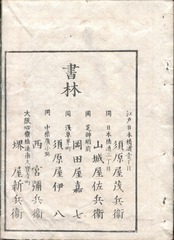 書林
江戸日本橋通壹丁目
須原屋茂兵衛
同 日本橋通二丁目
山城屋佐兵衛
同 芝神明前
岡田屋嘉七
同 浅草茅町
須原屋伊八
同 中橋廣小路
西宮彌兵衛
大阪心齋橋
堺屋新兵衛